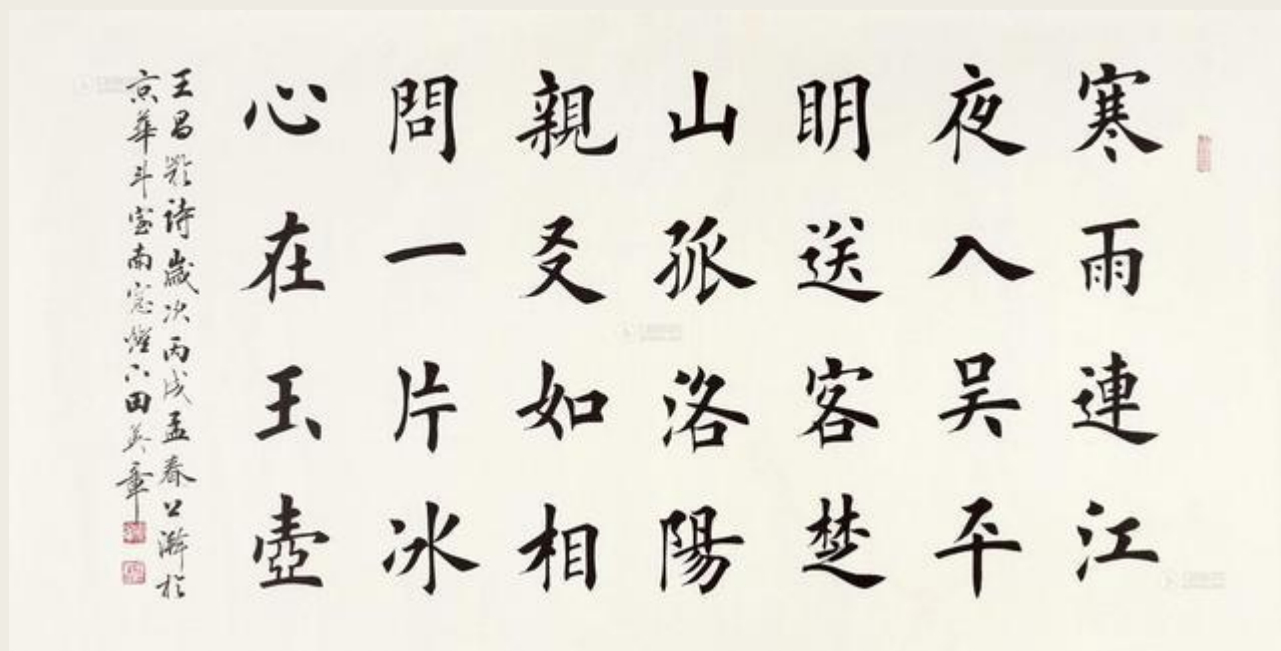 寒雨連江
夜入吴平
明送客楚
山孤洛陽
親友如相
問一片冰
心在玉壺
王昌齡詩歲次丙戌孟春上澣於
京華斗室南窓燈下田英章